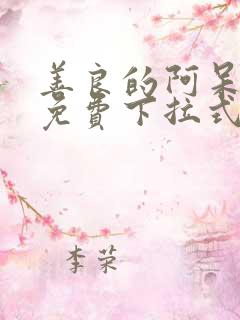 善良的阿呆
免费下拉式
李荣